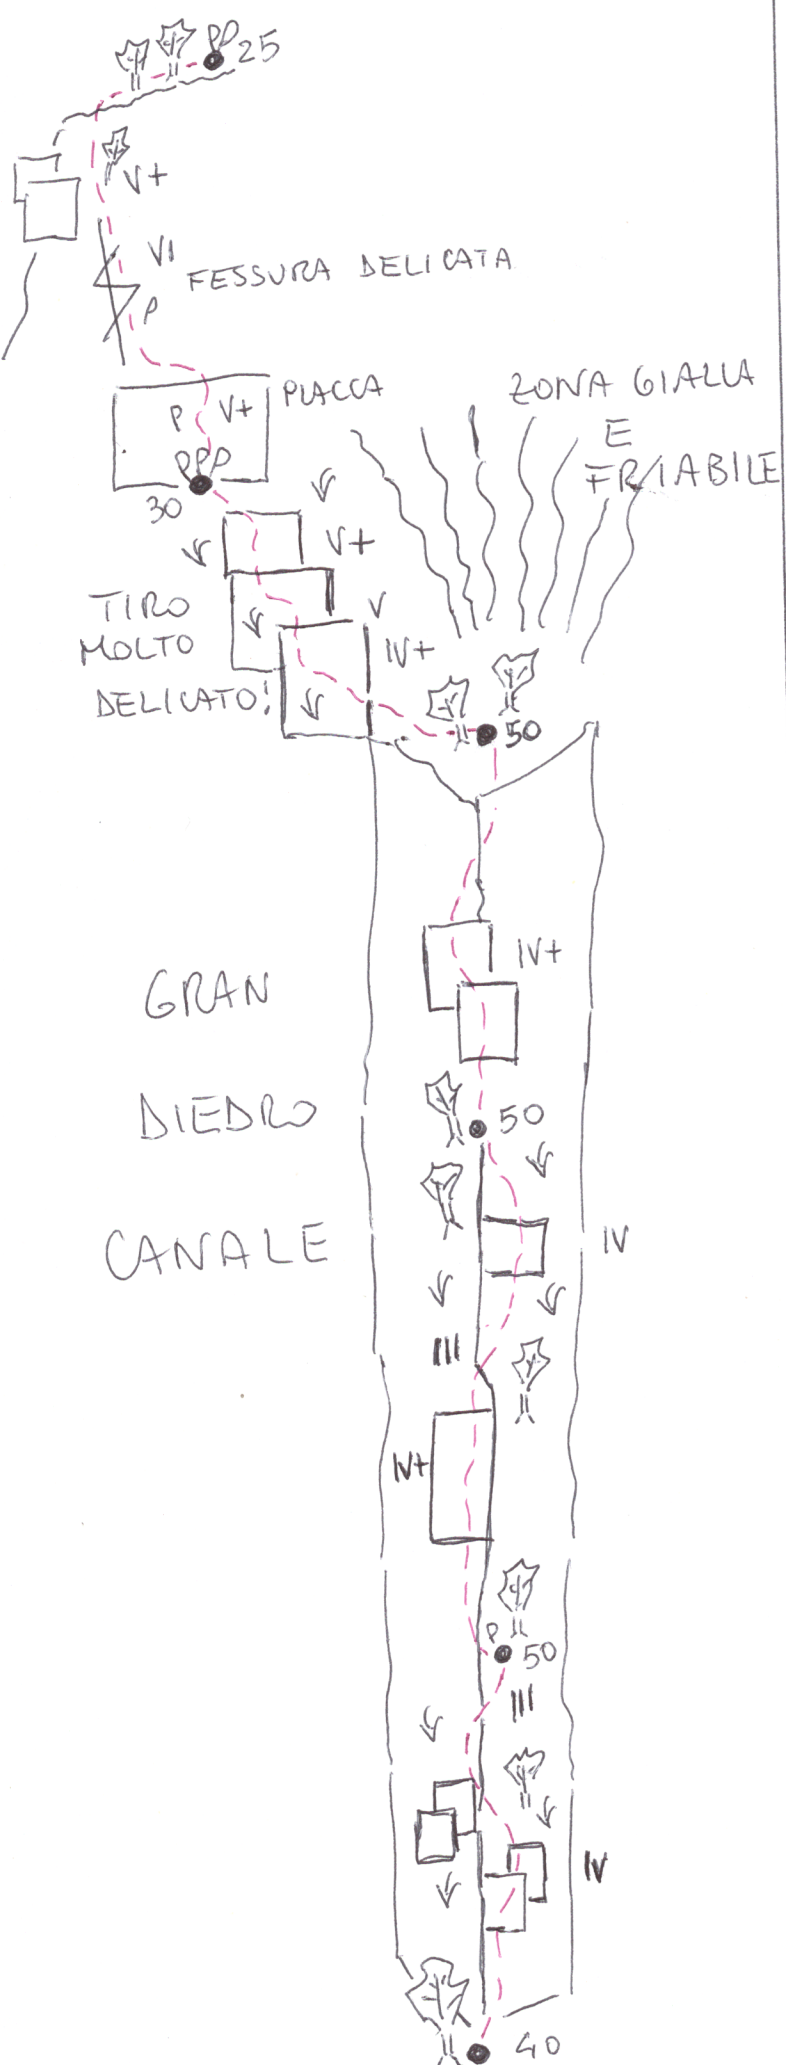 PP 25
V+
VI
FESSURA DELICATA
P
PLACCA
ZONA GIALLA
E
FRIABILE
P V+
PPP
30
V+
TIRO
MOLTO
DELICATO!
V
IV+
50
GRAN
IV+
DIEDRO
50
CANALE
IV
III
IV+
P
50
III
IV
40